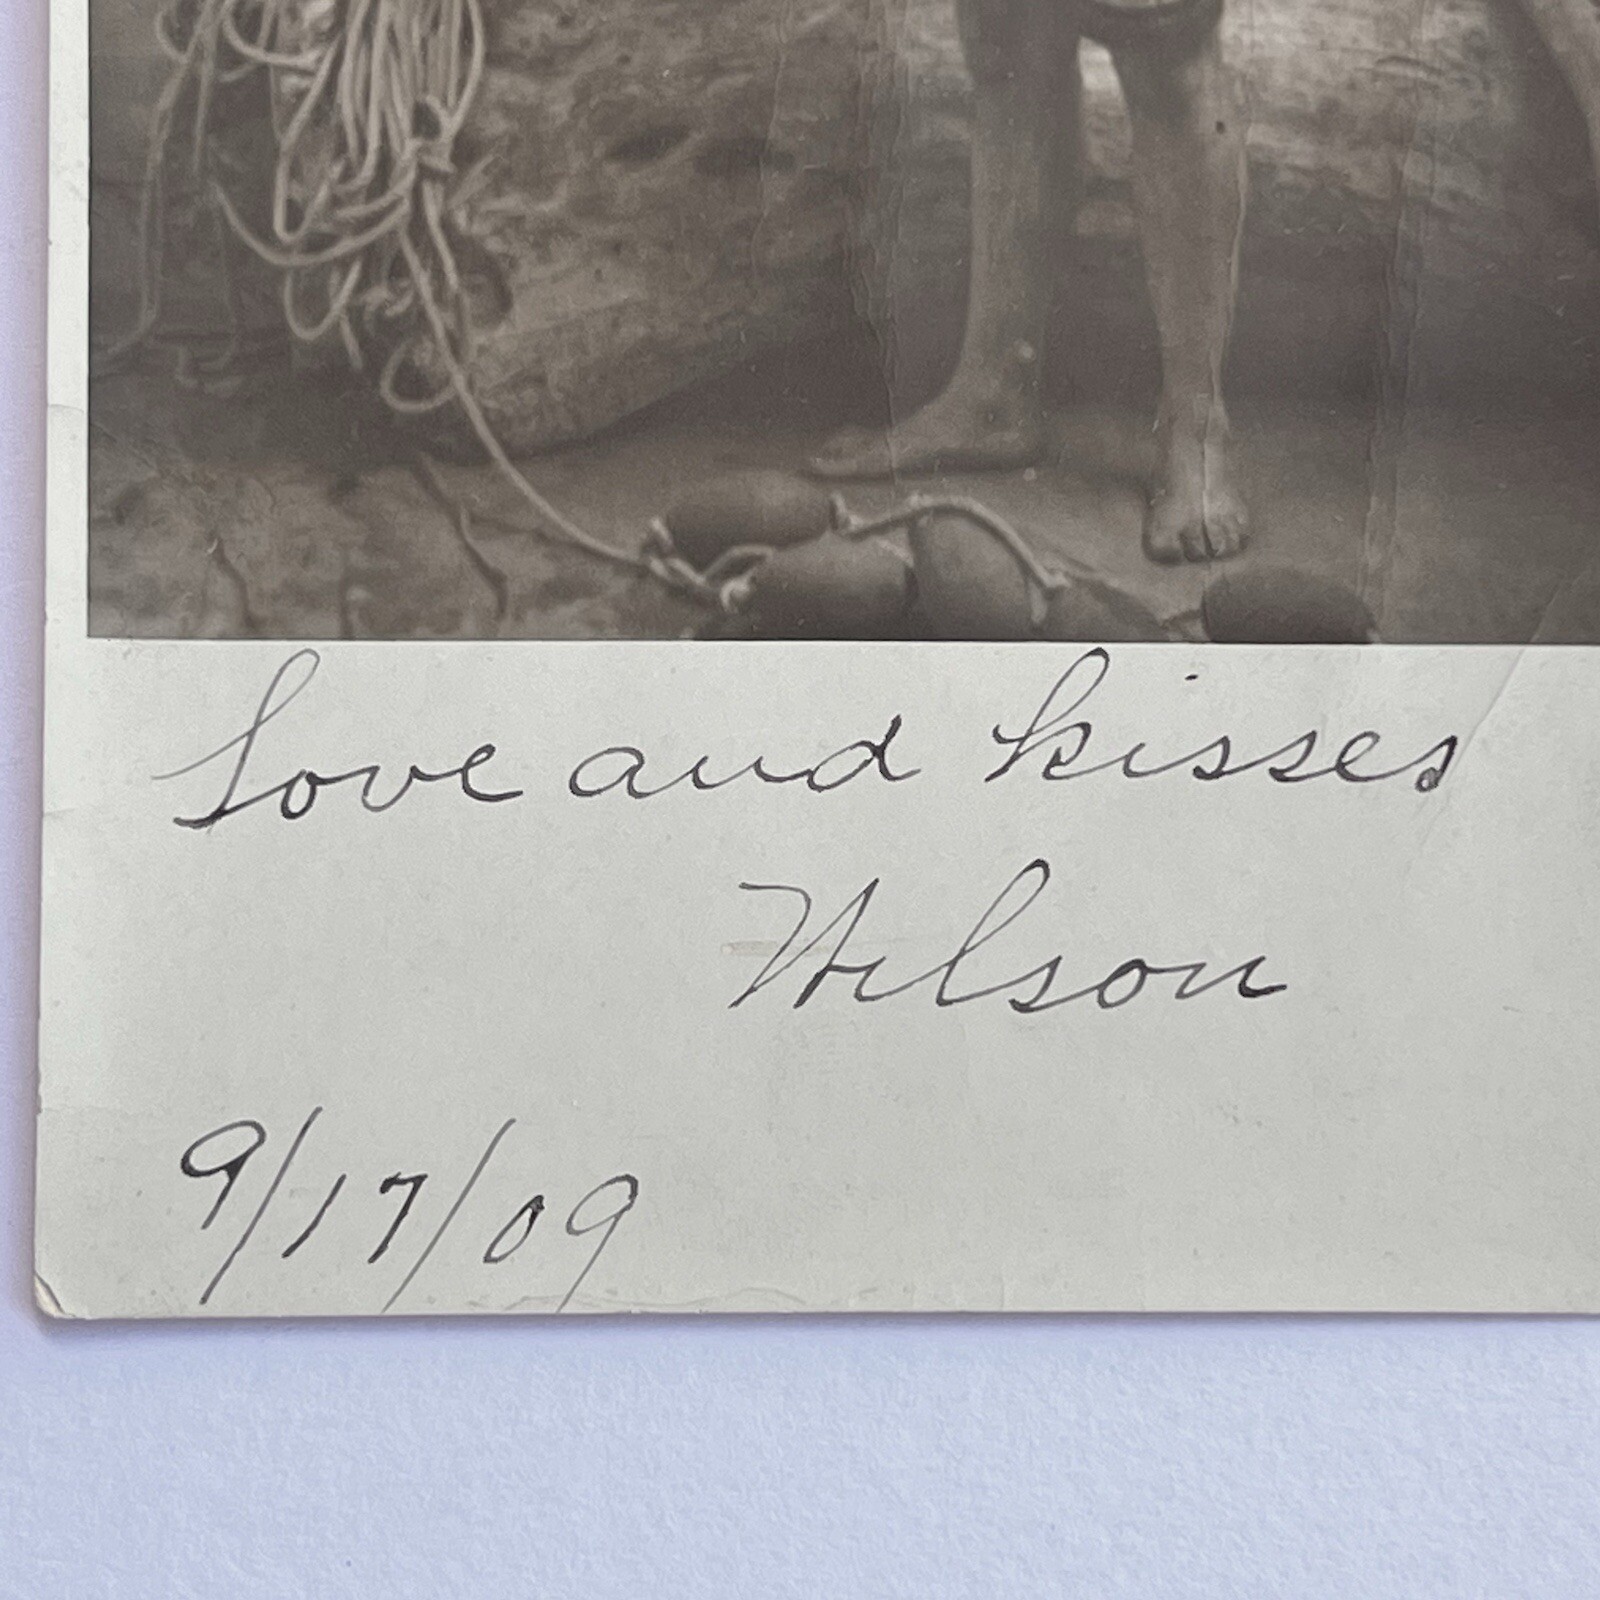 Love and kisses
Wilson
9/17/09